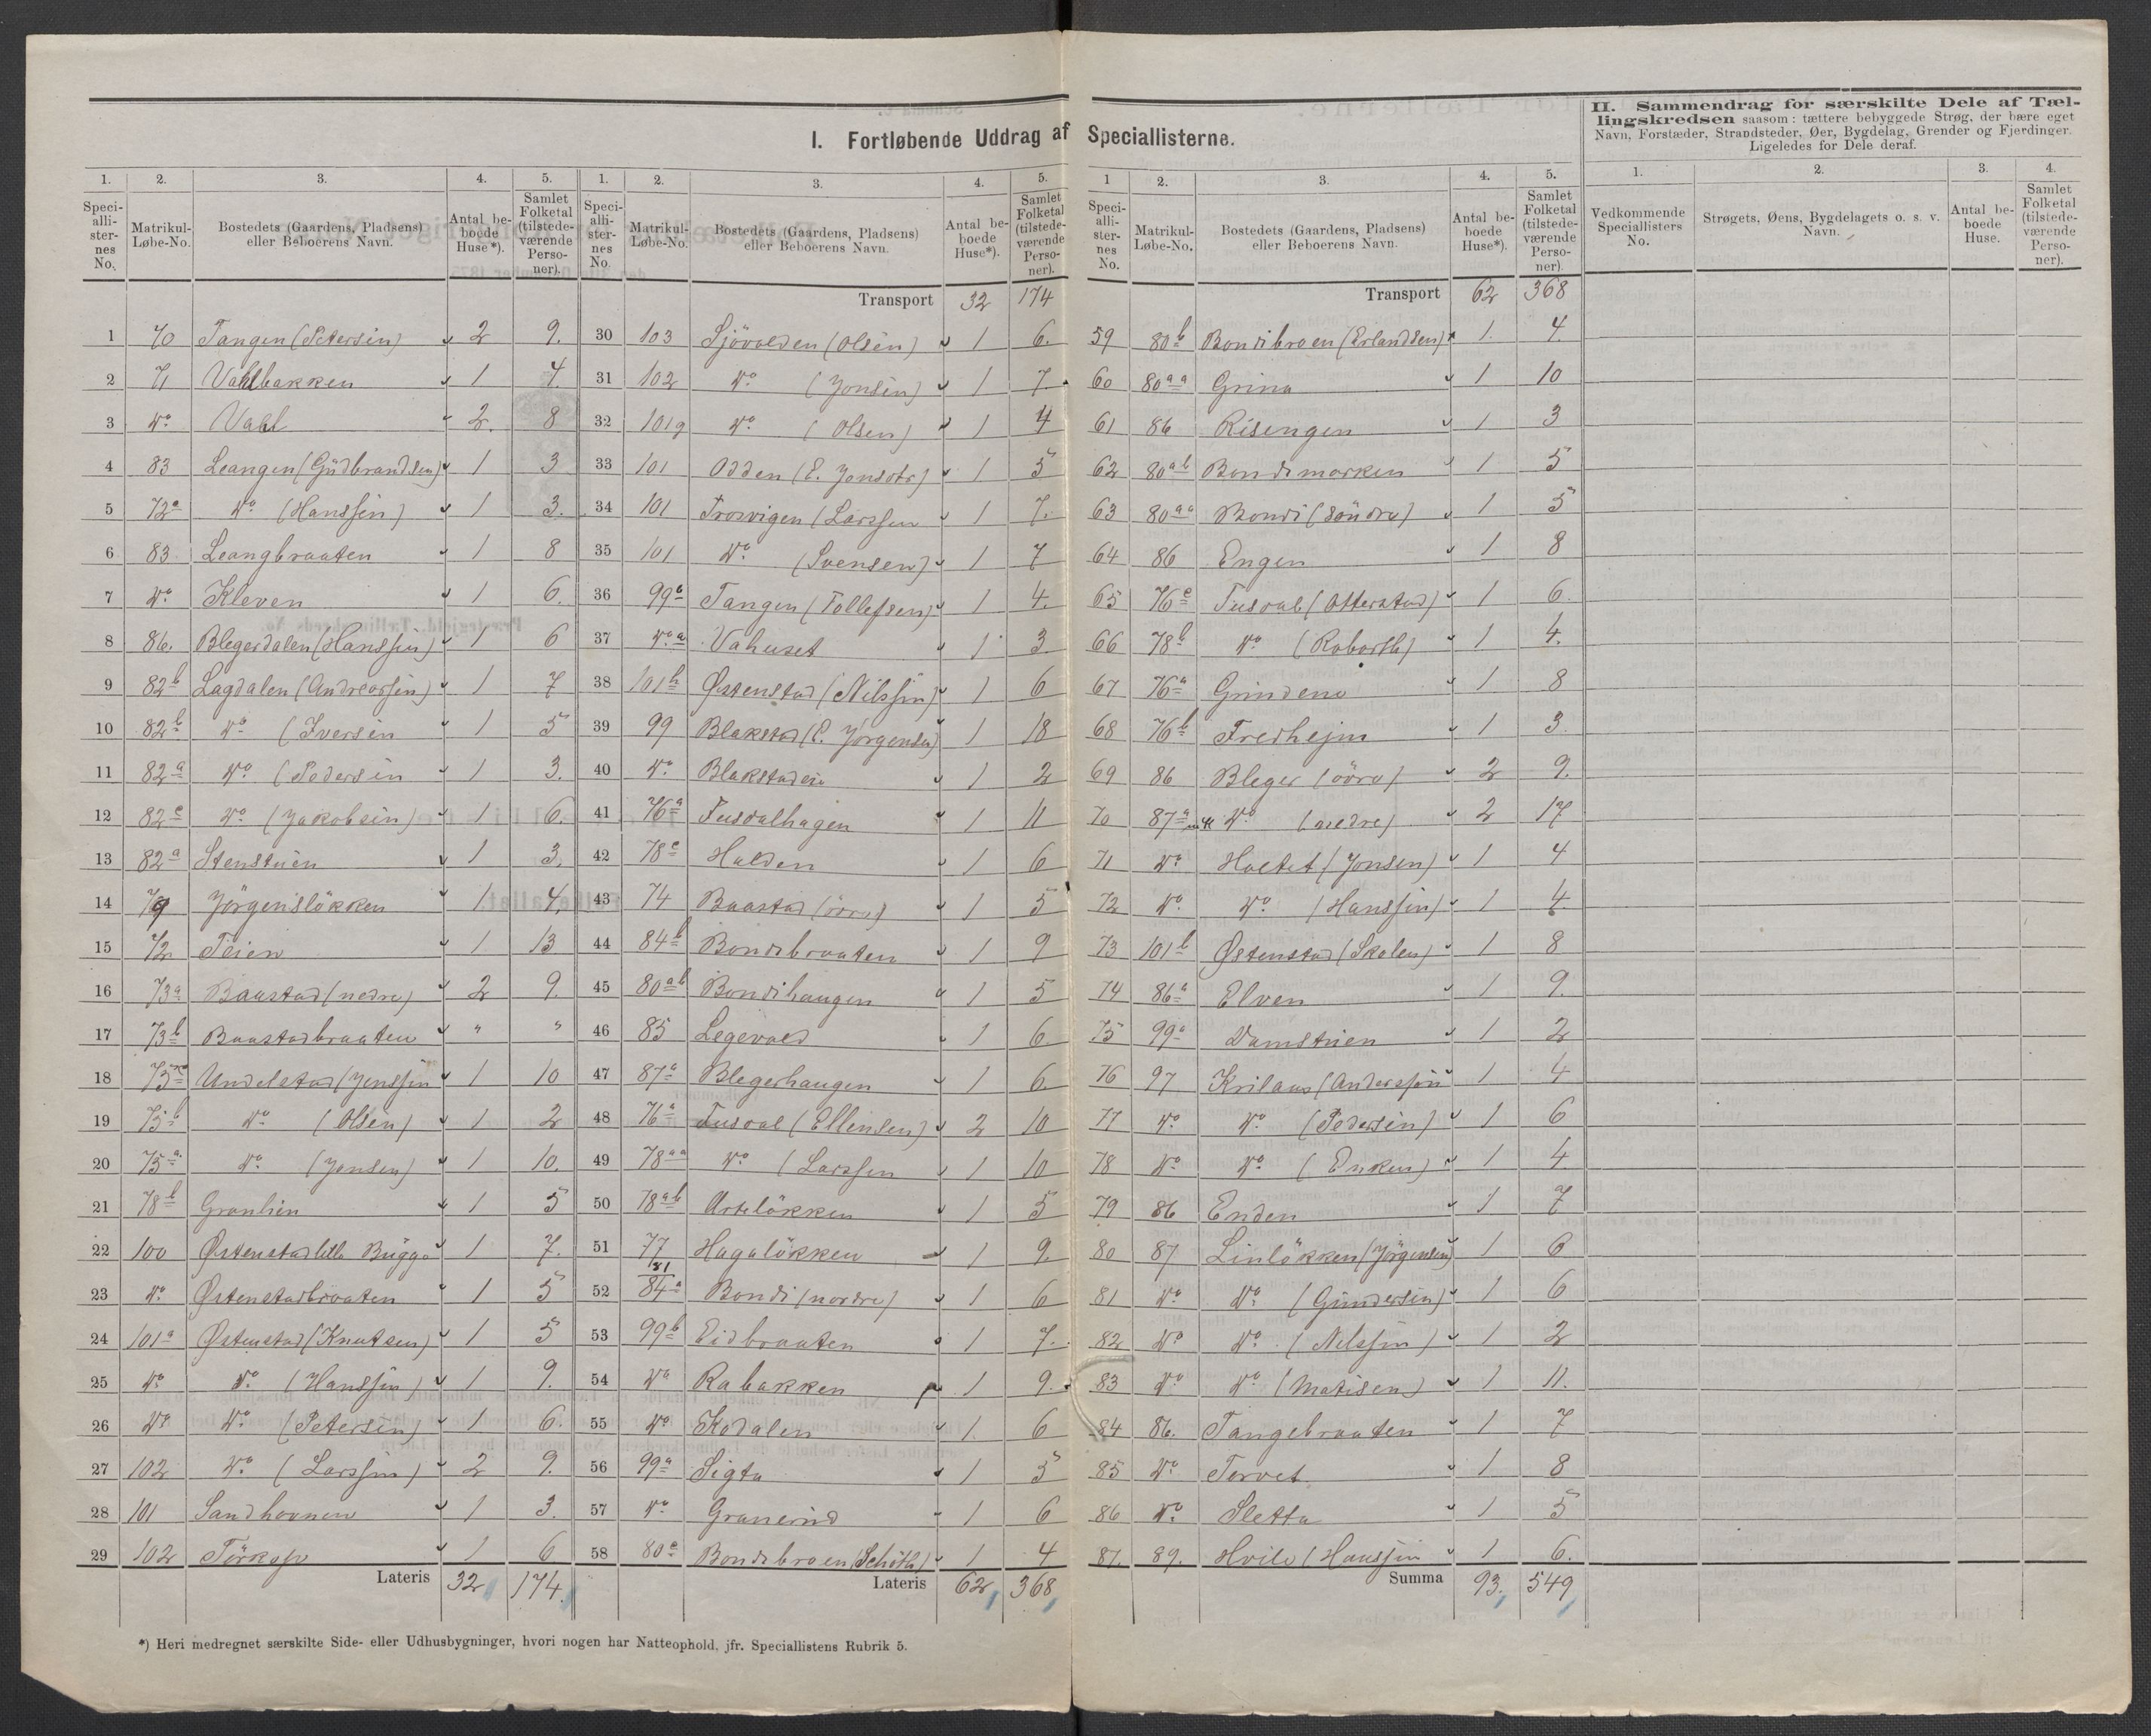 I. Fortløbende Uddrag af Speciallisterne.
II. Sammendrag for særskilte Dele af Tæl-
lingskredsen saasom: tættere bebyggede Strøg, der bære eget
Navn, Forstæder, Strandsteder, Øer, Bygdelag, Grender og Fjerdinger.
Ligeledes for Dele deraf.
1. 2. 3. 4. 5.
Speci-alli-ster-nes No. Matrikul-Løbe-No. Bostedets (Gaardens, Pladsens) eller Beboerens Navn. Antal be-boede Huse*). Samlet Folketal (tilstede-værende Perso-ner).
1 70 Tangen (Petersen) 2 9.
2 71 Vahlbakken 1 4.
3 Do Vahl 2. 8
4 83 Leangen (Gudbrandsen) 1 3
5 72a Do (Hanssen) 1 3.
6 83 Leangbraaten 1 8
7 Do Kleven 1 6.
8 86. Blegerdalen (Hanssen) 1 6
9 82b Lagdalen (Andreassen) 1 7
10 82b Do (Iversen 1 5
11 82a Do (Pedersen 1 3.
12 82c Do (Jakobsen) 1 6.
13 82a Stenstuen 1 3.
14 79 Jörgenslökken 1 4.
15 72 Teien 1 13
16 73a Baastad (nedre) 2 9.
17 73b Baastadbraaten " "
18 75c Undelstad (Jenssen 1 10
19 75b Do (Olsen) 1 2
20 75a Do (Jonsen) 1 10.
21 78b Granlien 1 5
22 100 Østenstad lille Bugga 1 7.
23 Do Østenstadbraaten 1 5
24 101a Østenstad (Knutsen) 1 5
25 Do Do (Hanssen) 1 9.
26 Do Do (Petersen) 1 6.
27 102 Do (Larssen) 2 9.
28 101 Sandhovnen 1 3.
29 102 Törkop 1 6
Lateris 32 174.
1. 2. 3. 4. 5.
Speci-alli-ster-nes No. Matrikul-Løbe-No. Bostedets (Gaardens, Pladsens) eller Beboerens Navn. Antal be-boede Huse*). Samlet Folketal (tilstede-værende Perso-ner).
Transport 32 174
30 103 Sjövolden (Olsen) 1 6.
31 102 Do (Jonsen) 1 7.
32 101g Do (Olsen) 1 4
33 101 Odden (E. Jonsdtr) 1 5
34 101 Trosvigen (Larssen 1 7.
35 101 Do (Svensen) 1 7
36 99b Tangen (Tollefsen) 1 4.
37 Do a Vahuset 1 3
38 101h Østenstad (Nilssen) 1 6
39 99 Blakstad (E. Jörgensen) 1 18
40 Do Blakstadeie 1 2
41 76a Tusdalhagen 1 11
42 78c Halden 1 6
43 74 Baastad (övre) 1 5
44 84b Bondibraaten 1 9
45 80ab Bondihaugen 1 5
46 85 Legevold 1 6
47 87a Blegerhaugen 1 6
48 76a Tusdal (Ellensen) 2 10
49 78aa Do (Larssen 1 10
50 78ab Asteløkken 1 5
51 77 Hagalökken 1 9.
52 81 84a Bondi (nordre) 1 6
53 99b Eidbraaten 1 7.
54 Do Rabakken 1 9.
55 Do Ekodalen 1 6
56 99a Sigta 1 5
57 Do Granerud 1 6
58 80c Bondibroen (Schöth) 1 4
Lateris 62 368
1 2. 3. 4. 5.
Speci-alli-ster-nes No. Matrikul-Løbe-No. Bostedets (Gaardens, Pladsens) eller Beboerens Navn. Antal be-boede Huse*). Samlet Folketal (tilstede-værende Perso-ner).
Transport 62 368
59 80b Bondibroen (Erlandsen) 1. 4.
60 80aa Grina 1 10
61 86 Risengen 1 3
62 80ab Bondimarken 1 5
63 80aa Bondi (söndre) 1 5
64 86 Engen 1 8
65 76c Tusdal (Otterstad) 1 6
66 78b Do 1 4.
67 76a Grindene 1 8
68 76b Fredhejm 1 3
69 86 Bleger (övre) 2 9.
70 87a Do (nedre) 2 17
71 Do Holtet (Jonsen) 1 4
72 Do Do (Hanssen) 1 4
73 101b Østenstad (Skolen) 1 8
74 86a Elven 1 9.
75 99a Damstuen 1 2
76 97 Krilaas (Anderssen 1 4
77 Do Do (Pedersen) 1 6
78 Do Do (Enken) 1 4.
79 86 Enden 1 7
80 87 Linlökken (Jörgensen) 1 6
81 Do Do (Gundersen) 1 6
82 Do Do (Nilssen) 1 2
83 Do Do (Matisen) 1 11.
84 86. Tangebraaten 1 7
85 Do Torvet 1 8
86 Do Sletta 1 5
87. 89. Hvile (Hanssen 1 6.
Summa 93. 549
1. 2. 3. 4.
Vedkommende Speciallisters No. Strøgets, Øens, Bygdelagets o. s. v. Navn. Antal be-boede Huse. Samlet Folketal (tilstede-værende Perso-ner).
*) Heri medregnet særskilte Side- eller Udhusbygninger, hvori nogen har Natteophold, jfr. Speciallistens Rubrik 5.